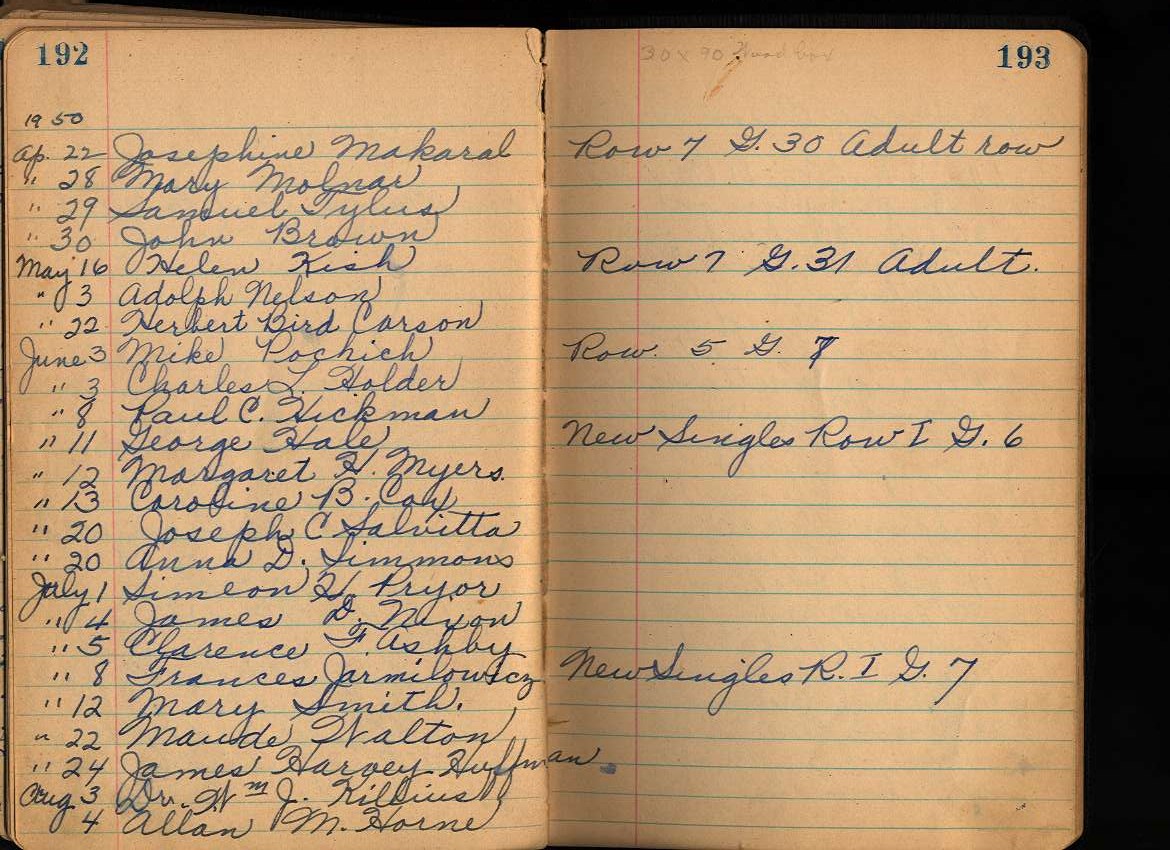 192
193
30 x 90 Wood box
1950
Ap. 22 Josephine Makaral Row 7 G. 30 Adult row
" 28 Mary Molnar
" 29 Samuel Tylus
" 30 John Brown
May 16 Helen Kish Row 7 G. 31 Adult.
" 3 Adolph Nelson
" 22 Herbert Bird Carson
June 3 Mike Pochich Row. 5 G. 7
" 3 Charles L. Holder
" 8 Paul C. Hickman
" 11 George Hale New Singles Row I G. 6
" 12 Margaret H. Myers.
" 13 Caroline B. Cox
" 20 Joseph C Salvitta
" 20 Anna D. Simmons
July 1 Simeon H. Pryor
" 4 James D. Nixon
" 5 Clarence F. Ashby
" 8 Frances Jarmilowicz New Singles R. I G. 7
" 12 Mary Smith.
" 22 Maude Walton
" 24 James Harvey Huffman
Aug 3 Dr. Wm J. Killius
4 Allan M. Horne